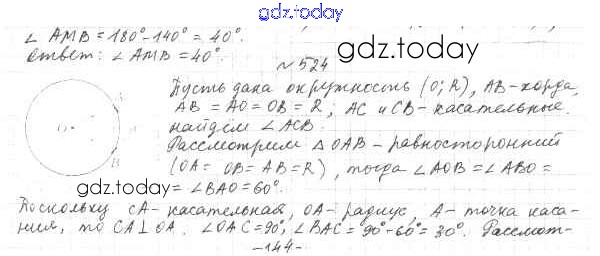 gdz.today
∠ AMB = 180° - 140° = 40°.
Ответ: ∠ AMB = 40°.
gdz.today
№ 524
Пусть дана окружность (O; R), AB - хорда,
AB = AO = OB = R; AC и CB - касательные.
найдём ∠ ACB.
Рассмотрим △ OAB - равносторонний
(OA = OB = AB = R), тогда ∠ AOB = ∠ ABO =
= ∠ BAO = 60°.
O
A
B
gdz.today
Поскольку CA - касательная, OA - радиус, A - точка каса-
ния, то CA ⊥ OA. ∠ OAC = 90°, ∠ BAC = 90° - 60° = 30°. Рассмот-
-144-
gdz.today